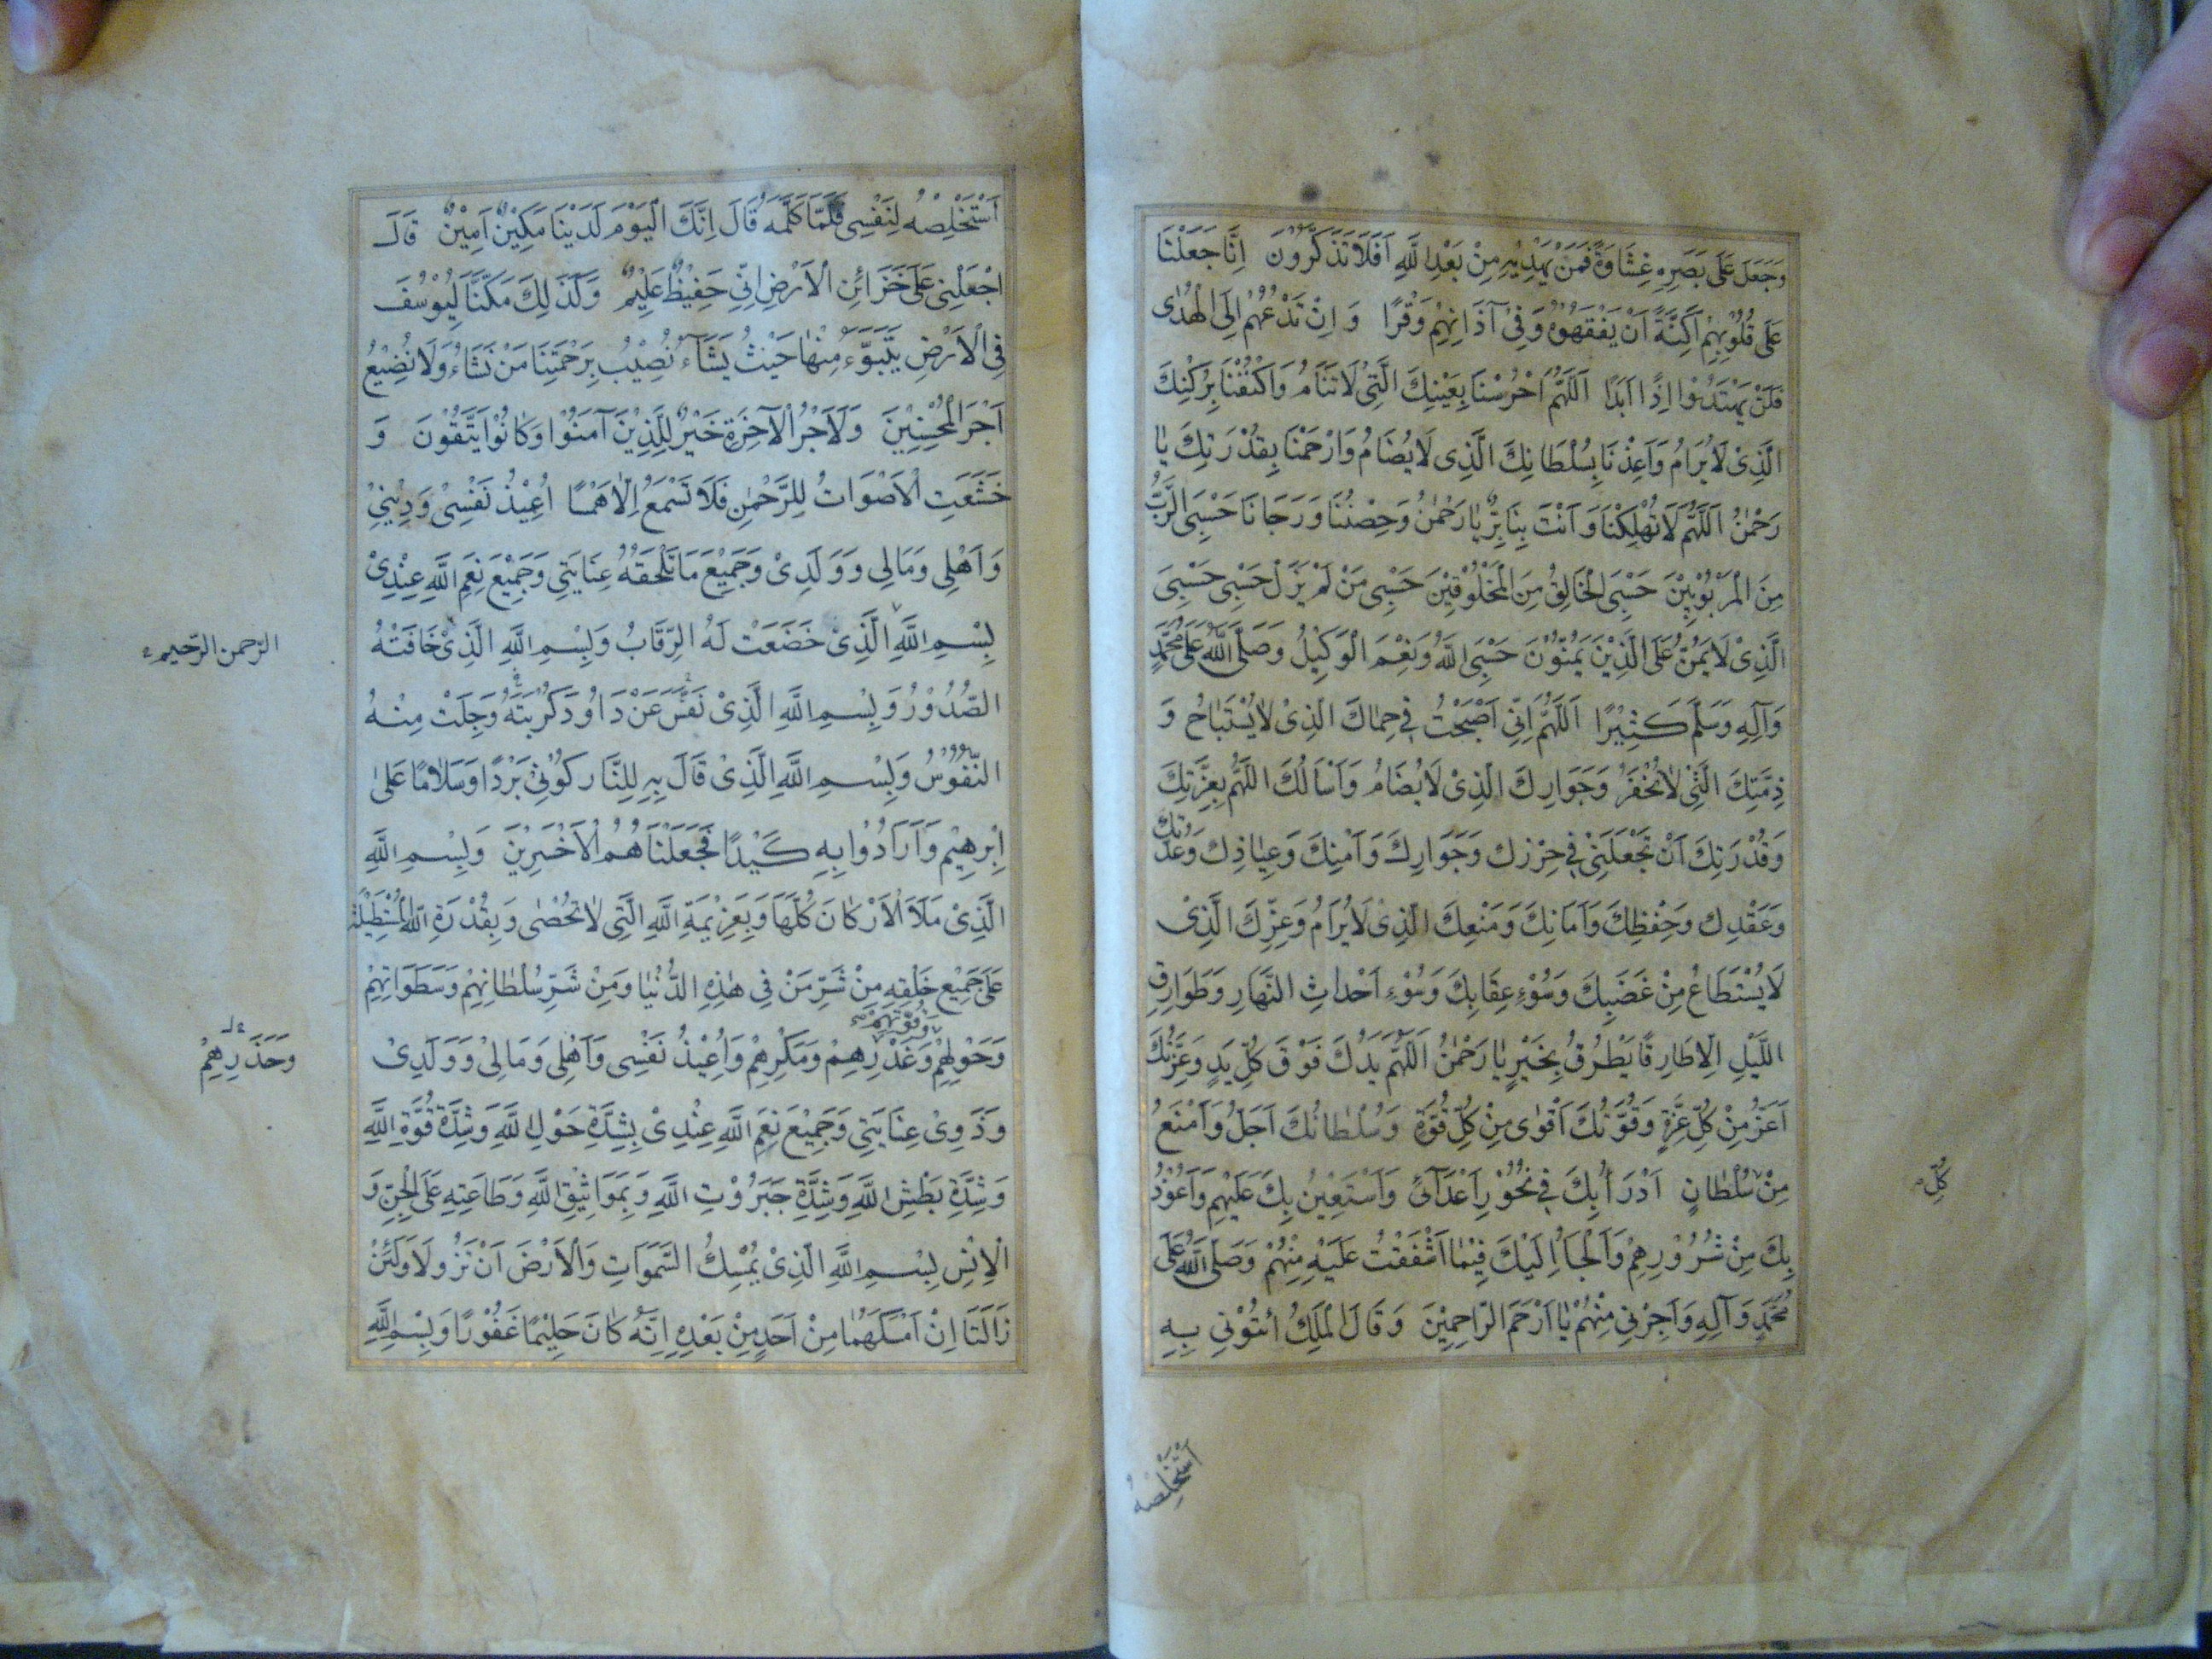 وَجَعَلَ عَلَى بَصَرِهِ غِشَاوَةً فَمَنْ يَهْدِيهِ مِنْ بَعْدِ اللَّهِ اَفَلَا تَذَكَّرُونَ اِنَّا جَعَلْنَا
عَلَى قُلُوْبِهِمْ اَكِنَّةً اَنْ يَفْقَهُوْهُ وَفِىْ آذَانِهِمْ وَقْرًا وَ اِنْ تَدْعُهُمْ اِلَى الْهُدٰى
فَلَنْ يَهْتَدُوْا اِذًا اَبَدًا اَللّٰهُمَّ احْرُسْنَا بِعَيْنِكَ الَّتِىْ لَا تَنَامُ وَاكْنُفْنَا بِرُكْنِكَ
الَّذِىْ لَا يُرَامُ وَاَعِذْنَا بِسُلْطَانِكَ الَّذِى لَا يُضَامُ وَارْحَمْنَا بِقُدْرَتِكَ يٰا
رَحْمٰنُ اَللّٰهُمَّ لَا تُهْلِكْنَا وَاَنْتَ بِنَا بَرٌّ يٰا رَحْمٰنُ وَحِصْنُنَا وَرَجَانَا حَسْبِىَ الرَّبُّ
مِنَ الْمَرْبُوْبِيْنَ حَسْبِىَ الْخَالِقُ مِنَ الْمَخْلُوْقِيْنَ حَسْبِى مَنْ لَمْ يَزَلْ حَسْبِى حَسْبِىَ
الَّذِىْ لَا يَمُنُّ عَلَى الَّذِيْنَ يَمُنُّوْنَ حَسْبِىَ اللّٰهُ وَنِعْمَ الْوَكِيْلُ وَصَلَّى اللّٰهُ عَلٰى مُحَمَّدٍ
وَآلِهِ وَسَلَّمَ كَثِيْرًا اَللّٰهُمَّ اِنِّى اَصْبَحْتُ فِى حِمٰاكَ الَّذِىْ لَا يُسْتَبَاحُ وَ
ذِمَّتِكَ الَّتِىْ لَا تُخْفَرُ وَجَوَارِكَ الَّذِىْ لَا يُضَامُ وَاَسْاَلُكَ اللّٰهُمَّ بِعِزَّتِكَ
وَقُدْرَتِكَ اَنْ تَجْعَلَنِىْ فِى حِرْزِكَ وَجَوَارِكَ وَاَمْنِكَ وَعِيٰاذِكَ وَعُدَّتِكَ
وَعَقْدِكَ وَحِفْظِكَ وَاَمَانِكَ وَمَنْعِكَ الَّذِىْ لَا يُرَامُ وَعِزِّكَ الَّذِىْ
لَا يُسْتَطَاعُ مِنْ غَضَبِكَ وَسُوْءِ عِقَابِكَ وَسُوْءِ اَحْدَاثِ النَّهَارِ وَطَوَارِقِ
اللَّيْلِ اِلَّا طَارِقًا يَطْرُقُ بِخَيْرٍ يٰا رَحْمٰنُ اَللّٰهُمَّ يَدُكَ فَوْقَ كُلِّ يَدٍ وَعِزَّتُكَ
اَعَزُّ مِنْ كُلِّ عِزَّةٍ وَقُوَّتُكَ اَقْوٰى مِنْ كُلِّ قُوَّةٍ وَسُلْطٰانُكَ اَجَلُّ وَاَمْنَعُ
مِنْ سُلْطَانٍ اَدْرَاُ بِكَ فِى نُحُوْرِ اَعْدَآئِى وَاَسْتَعِيْنُ بِكَ عَلَيْهِمْ وَاَعُوْذُ
كُلِّ
بِكَ مِنْ شُرُوْرِهِمْ وَاَلْجَاُ اِلَيْكَ فِيْمَا اَشْفَقْتُ عَلَيْهِ مِنْهُمْ وَصَلَّى اللّٰهُ عَلٰى
مُحَمَّدٍ وَآلِهِ وَاَجِرْنِى مِنْهُمْ يٰا اَرْحَمَ الرَّاحِمِيْنَ وَقَالَ الْمَلِكُ ائْتُوْنِى بِهِ
اَسْتَخْلِصْهُ
اَسْتَخْلِصْهُ لِنَفْسِى فَلَمَّا كَلَّمَهُ قَالَ اِنَّكَ الْيَوْمَ لَدَيْنَا مَكِيْنٌ اَمِيْنٌ قَالَ
اجْعَلْنِى عَلَى خَزَائِنِ الْاَرْضِ اِنِّى حَفِيْظٌ عَلِيْمٌ وَكَذَلِكَ مَكَّنَّا لِيُوْسُفَ
فِى الْاَرْضِ يَتَبَوَّءُ مِنْهَا حَيْثُ يَشَآءُ نُصِيْبُ بِرَحْمَتِنَا مَنْ نَشَاءُ وَلَا نُضِيْعُ
اَجْرَ الْمُحْسِنِيْنَ وَلَاَجْرُ الْآخِرَةِ خَيْرٌ لِلَّذِيْنَ آمَنُوْا وَكَانُوْا يَتَّقُوْنَ وَ
خَشَعَتِ الْاَصْوَاتُ لِلرَّحْمٰنِ فَلَا تَسْمَعُ اِلَّا هَمْسًا اُعِيْذُ نَفْسِىْ وَدِيْنِىْ
وَاَهْلِى وَمَالِى وَوَلَدِىْ وَجَمِيْعَ مَا تَلْحَقُهُ عِنَايَتِى وَجَمِيْعَ نِعَمِ اللّٰهِ عِنْدِىْ
بِسْمِ اللّٰهِ الَّذِىْ خَضَعَتْ لَهُ الرِّقَابُ وَبِسْمِ اللّٰهِ الَّذِىْ خَافَتْهُ
الرّحمن الرّحيم
الصُّدُوْرُ وَبِسْمِ اللّٰهِ الَّذِىْ نَفَّسَ عَنْ دَاوُدَ كُرْبَتَهُ وَجِلَتْ مِنْهُ
النُّفُوْسُ وَبِسْمِ اللّٰهِ الَّذِىْ قَالَ بِهِ لِلنَّارِ كُوْنِىْ بَرْدًا وَسَلَامًا عَلٰى
اِبْرٰهِيْمَ وَاَرَادُوْا بِهِ كَيْدًا فَجَعَلْنَاهُمُ الْاَخْسَرِيْنَ وَبِسْمِ اللّٰهِ
الَّذِىْ مَلَاَ الْاَرْكَانَ كُلَّهَا وَبِعَزِيْمَةِ اللّٰهِ الَّتِى لَا تُحْصٰى وَبِقُدْرَةِ اللّٰهِ الْمُسْتَطِيْلَةِ
عَلٰى جَمِيْعِ خَلْقِهِ مِنْ شَرِّ مَنْ فِى هٰذِهِ الدُّنْيَا وَمِنْ شَرِّ سُلْطَانِهِمْ وَسَطَوَاتِهِمْ
وَقُوَّتِهِمْ
وَحَوْلِهِمْ وَغَدْرِهِمْ وَمَكْرِهِمْ وَاُعِيْذُ نَفْسِى وَاَهْلِى وَمَالِىْ وَوَلَدِىْ
وَحَذَرِهِمْ
وَذَوِىْ عِنَايَتِى وَجَمِيْعَ نِعَمِ اللّٰهِ عِنْدِىْ بِشِدَّةِ حَوْلِ اللّٰهِ وَشِدَّةِ قُوَّةِ اللّٰهِ
وَشِدَّةِ بَطْشِ اللّٰهِ وَشِدَّةِ جَبَرُوْتِ اللّٰهِ وَبِمَوَاثِيْقِ اللّٰهِ وَطَاعَتِهِ عَلَى الْجِنِّ وَ
الْاِنْسِ بِسْمِ اللّٰهِ الَّذِىْ يُمْسِكُ السَّمَوَاتِ وَالْاَرْضَ اَنْ تَزُوْلَا وَلَئِنْ
زَالَتَا اِنْ اَمْسَكَهُمَا مِنْ اَحَدٍ مِنْ بَعْدِهِ اِنَّهُ كَانَ حَلِيْمًا غَفُوْرًا وَبِسْمِ اللّٰهِ